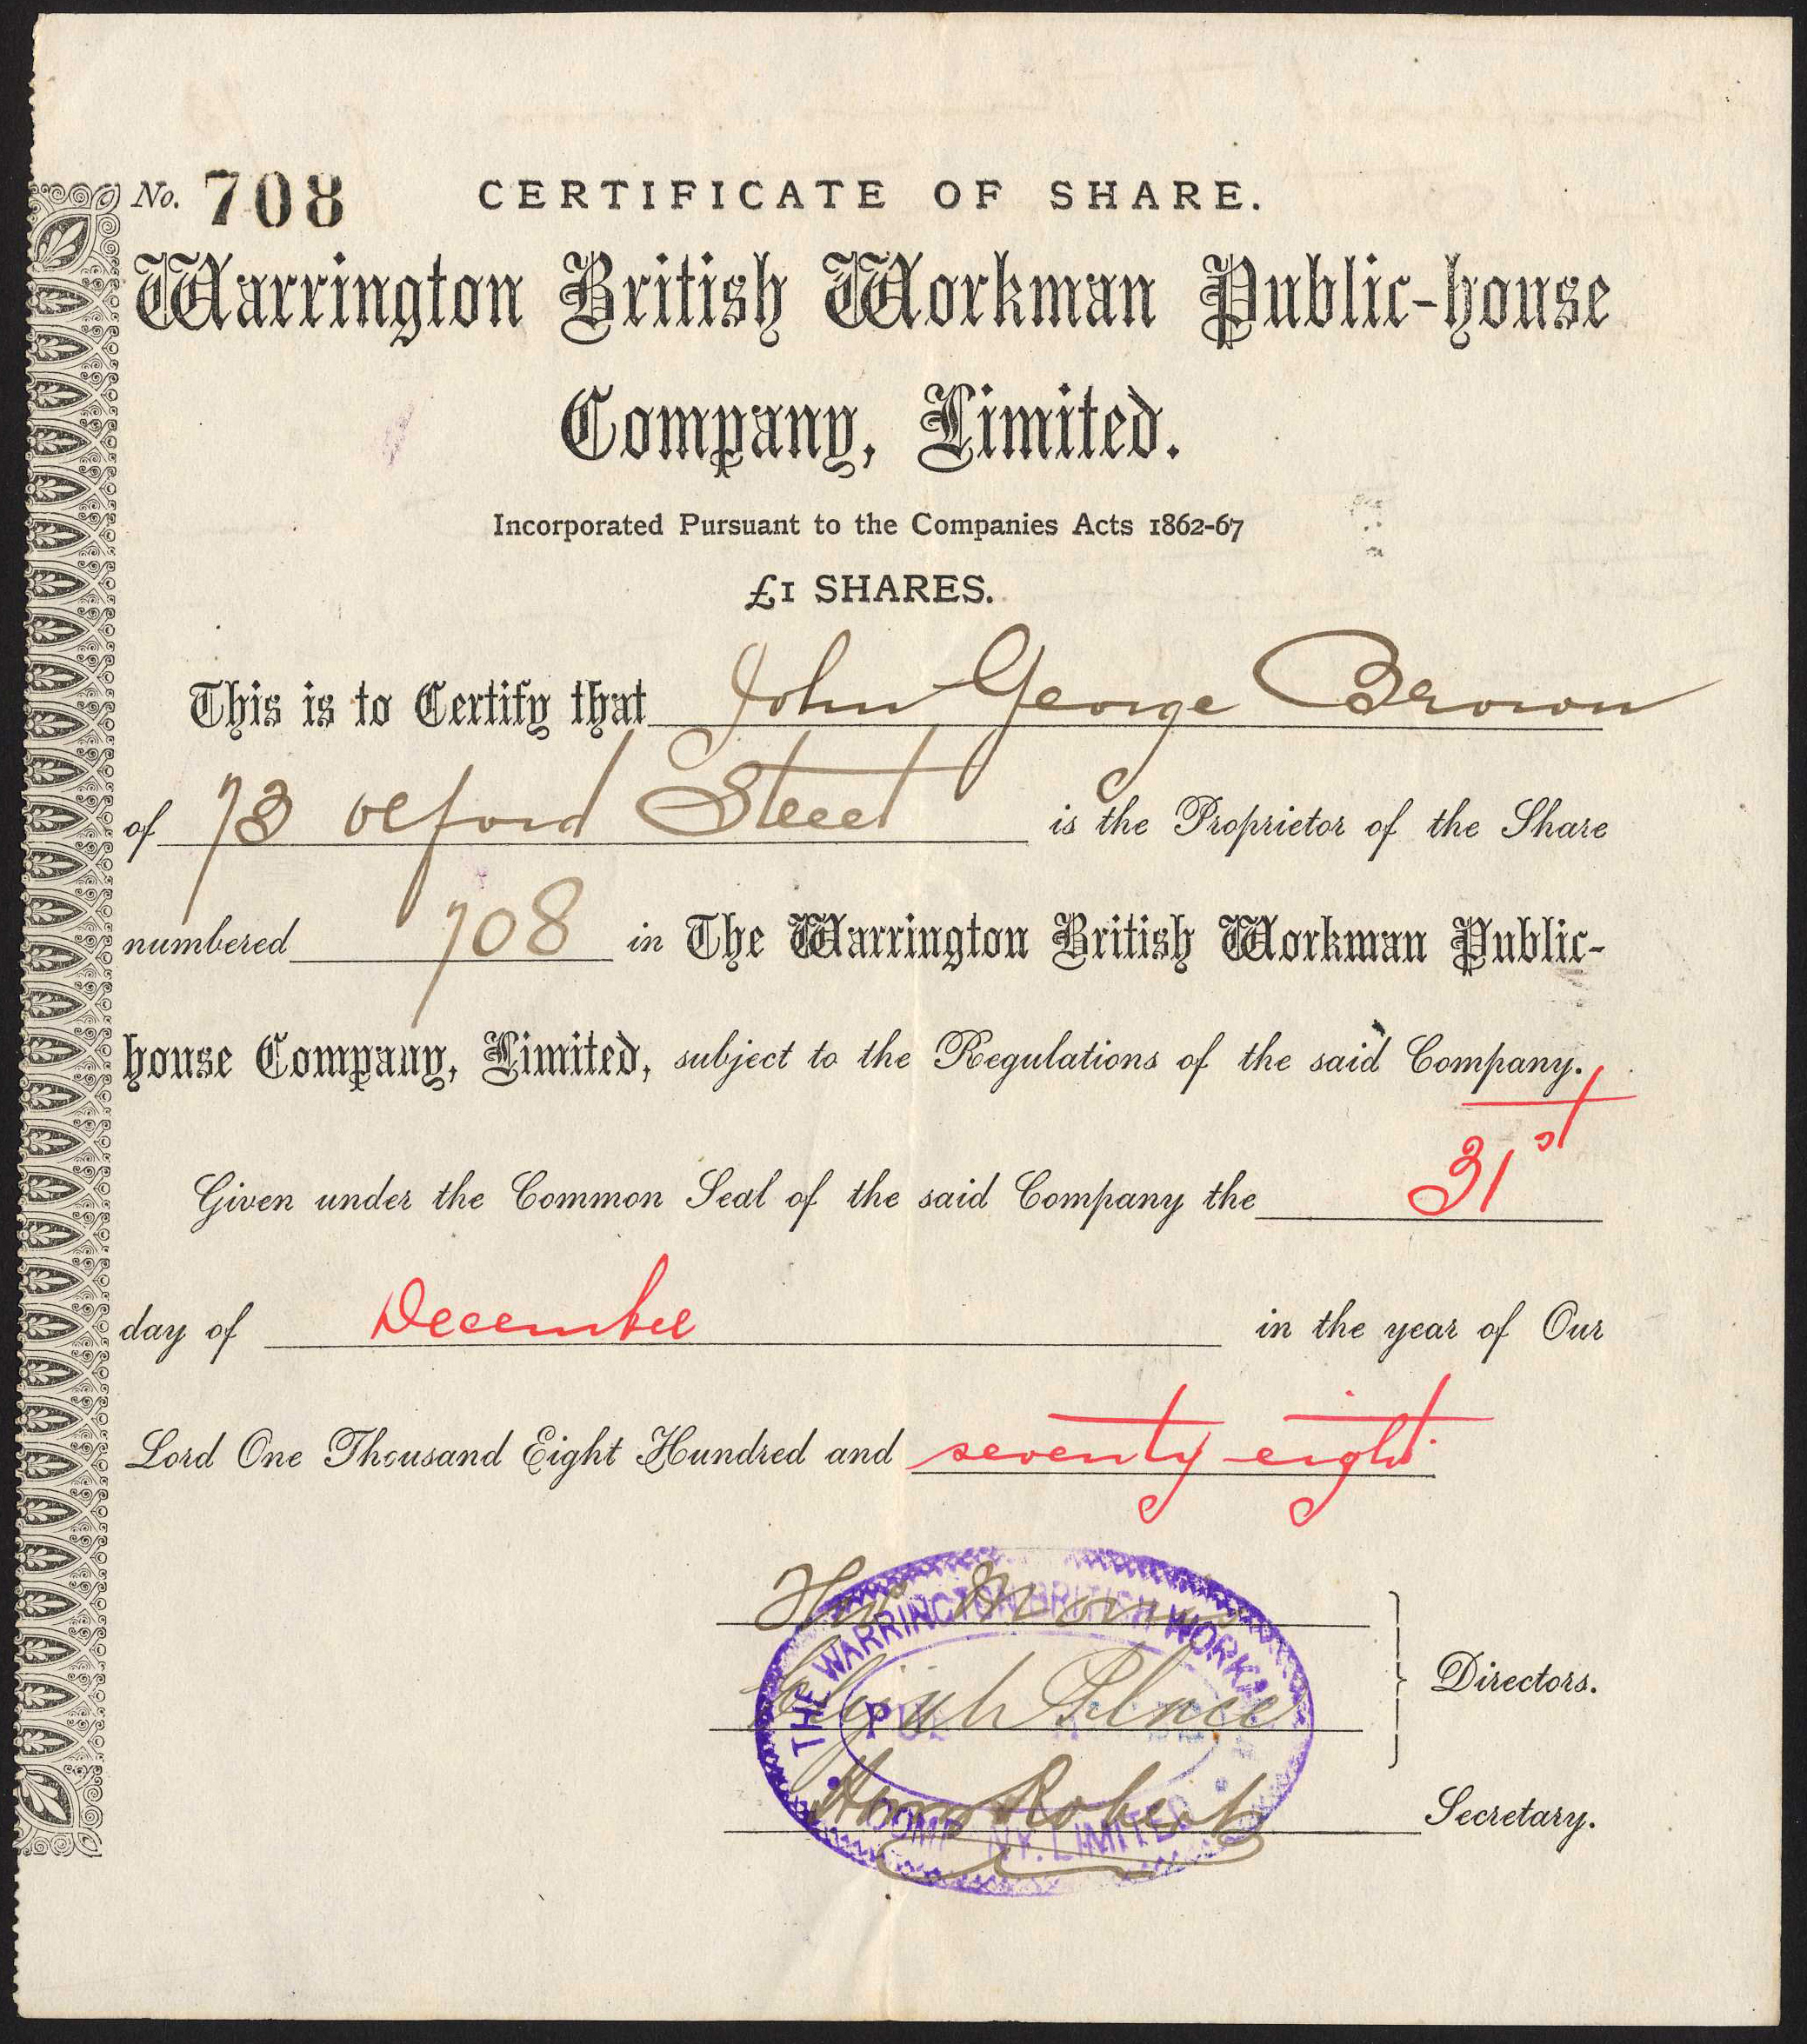 No. 708 CERTIFICATE OF SHARE.
Warrington British Workman Public-house
Company, Limited.
Incorporated Pursuant to the Companies Acts 1862-67
£1 SHARES.
This is to Certify that John George Brown
of 73 Street is the Proprietor of the Share
numbered 708 in The Warrington British Workman Public-
house Company, Limited, subject to the Regulations of the said Company.
Given under the Common Seal of the said Company the 31st
day of December in the year of Our
Lord One Thousand Eight Hundred and seventy eight
THE WARRINGTON BRITISH
Elijah
Directors.
Roberts
Secretary.
LIMITED